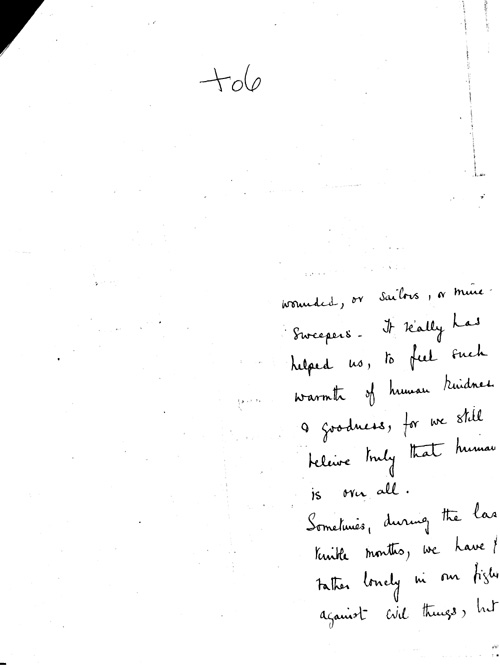 +06
wounded, or sailors, or mine-
sweepers. It really has
helped us, to feel such
warmth of human kindnes
& goodness, for we still
beleive truly that human
is over all.
Sometimes, during the las
terrible months, we have f
rather lonely in our fight
against evil things, but